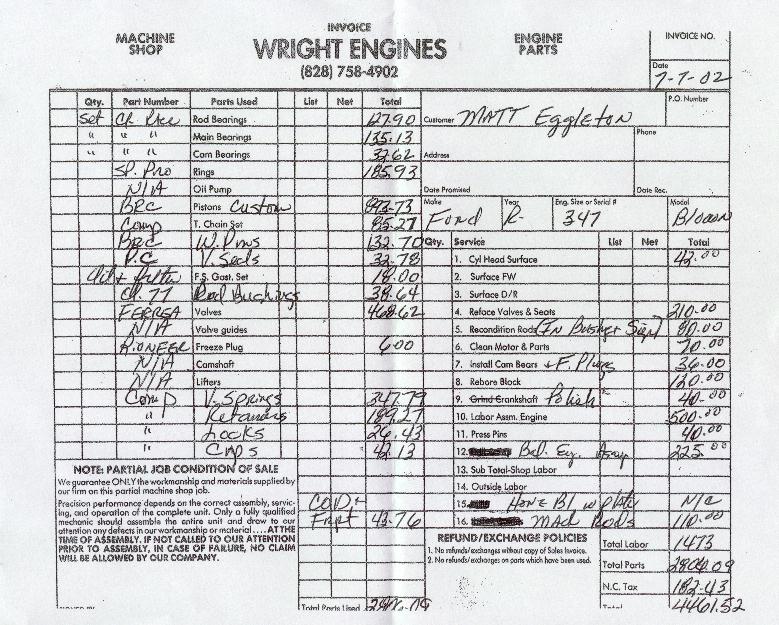 INVOICE
MACHINE SHOP
WRIGHT ENGINES
(828) 758-4902
ENGINE PARTS
INVOICE NO.
Date
7-7-02
P.O. Number
Customer MATT Eggleton
Phone
Address
Date Promised
Date Rec.
Make Ford
Year R-
Eng. Size or Serial # 347
Model
Qty. Part Number Parts Used List Net Total
Set Rod Bearings 127.90
" " " Main Bearings 135.13
" " " Cam Bearings 37.62
SP. Pro Rings 185.93
N/A Oil Pump
BRC Pistons Custom 893.73
Comp T. Chain Set 85.27
BRC W. Pins 132.70
P.C V. Seals 32.78
F.S. Gast. Set 18.00
CH. 77 Rod Bushings 38.64
FERREA Valves 468.62
N/A Valve guides
PIONEER Freeze Plug 6.00
N/A Camshaft
N/A Lifters
Comp V. Springs 347.79
" Retainers 189.27
" Locks 26.43
" Cups 42.13
Qty. Service List Net Total
1. Cyl Head Surface 42.00
2. Surface FW
3. Surface D/R
4. Reface Valves & Seats 210.00
5. Recondition Rods (IN Bushet Size) 80.00
6. Clean Motor & Parts 70.00
7. Install Cam Bears + F. Plugs 36.00
8. Rebore Block 120.00
9. Grind Crankshaft Polish 40.00
10. Labor Assm. Engine 500.00
11. Press Pins 40.00
12. Bal. Eng. Assy 225.00
13. Sub Total-Shop Labor
14. Outside Labor
15. Hone Bl w plate N/C
16. Mad Rods 110.00
NOTE: PARTIAL JOB CONDITION OF SALE
We guarantee ONLY the workmanship and materials supplied by
our firm on this partial machine shop job.
Precision performance depends on the correct assembly, servic-
ing, and operation of the complete unit. Only a fully qualified
mechanic should assemble the entire unit and draw to our
attention any defects in our workmanship or material....AT THE
TIME OF ASSEMBLY. IF NOT CALLED TO OUR ATTENTION
PRIOR TO ASSEMBLY, IN CASE OF FAILURE, NO CLAIM
WILL BE ALLOWED BY OUR COMPANY.
COD+
Frpt 43.76
Total Parts Used
REFUND/EXCHANGE POLICIES
1. No refunds/exchanges without copy of Sales Invoice.
2. No refunds/exchanges on parts which have been used.
Total Labor 1473
Total Parts 2806.09
N.C. Tax 182.43
Total 4461.52